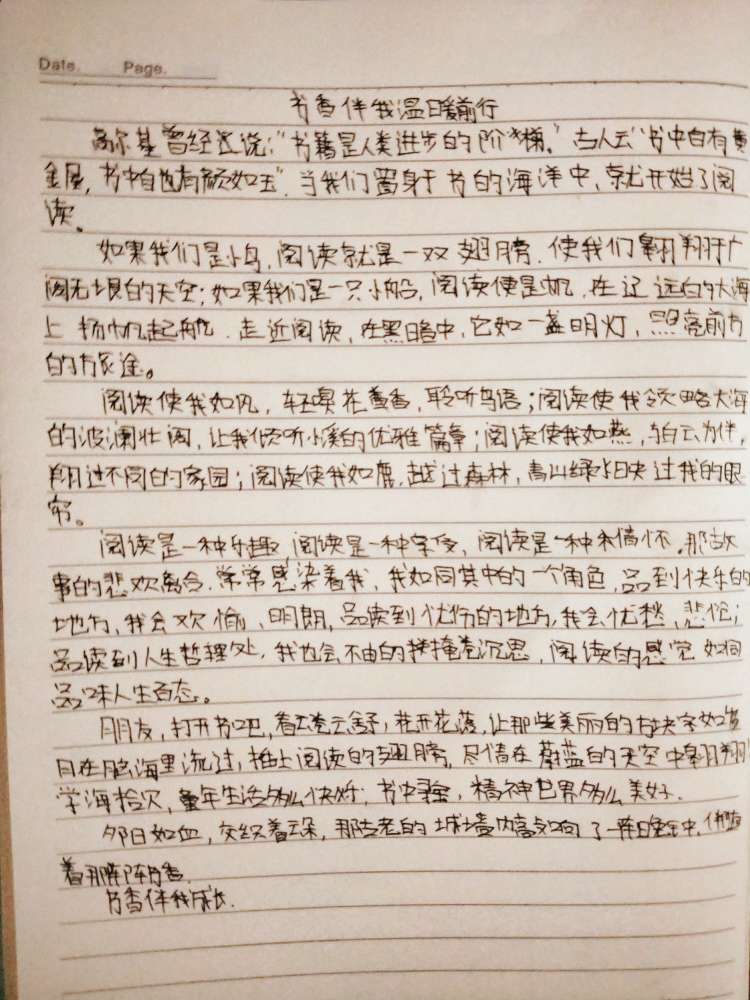 Date. Page.
书香伴我温暖前行
高尔基曾经还说:“书籍是人类进步的阶梯。”古人云“书中自有黄
金屋,书中自也有颜如玉”.当我们置身于书的海洋中,就开始了阅
读。
如果我们是小鸟,阅读就是一双翅膀.使我们翱翔于广
阔无垠的天空;如果我们是一只小船,阅读便是帆.在辽远的大海
上扬帆起航.走近阅读,在黑暗中,它如一盏明灯,照亮前方
的旅途。
阅读使我如风,轻嗅花蕾香,聆听鸟语;阅读使我领略大海
的波澜壮阔,让我倾听小溪的优雅篇章;阅读使我如燕,与白云为伴,
翔过不同的家园;阅读使我如鹿,越过森林,青山绿水映过我的眼
帘。
阅读是一种乐趣,阅读是一种享受,阅读是一种情怀.那故
事的悲欢离合.常常感染着我,我如同其中的一个角色,品到快乐的
地方,我会欢愉、明朗,品读到忧伤的地方,我会忧愁、悲伤;
品读到人生哲理处,我也会不由的掩卷沉思,阅读的感觉如同
品味人生百态。
朋友,打开书吧,看云卷云舒,花开花落,让那些美丽的方块字如岁
月在脑海里流过,插上阅读的翅膀,尽情在蔚蓝的天空中翱翔
学海拾贝,童年生活多么快乐;书中寻宝,精神世界多么美好.
夕日如血,交织着云朵,那古老的城墙内
着那阵阵书香.
书香伴我成长.